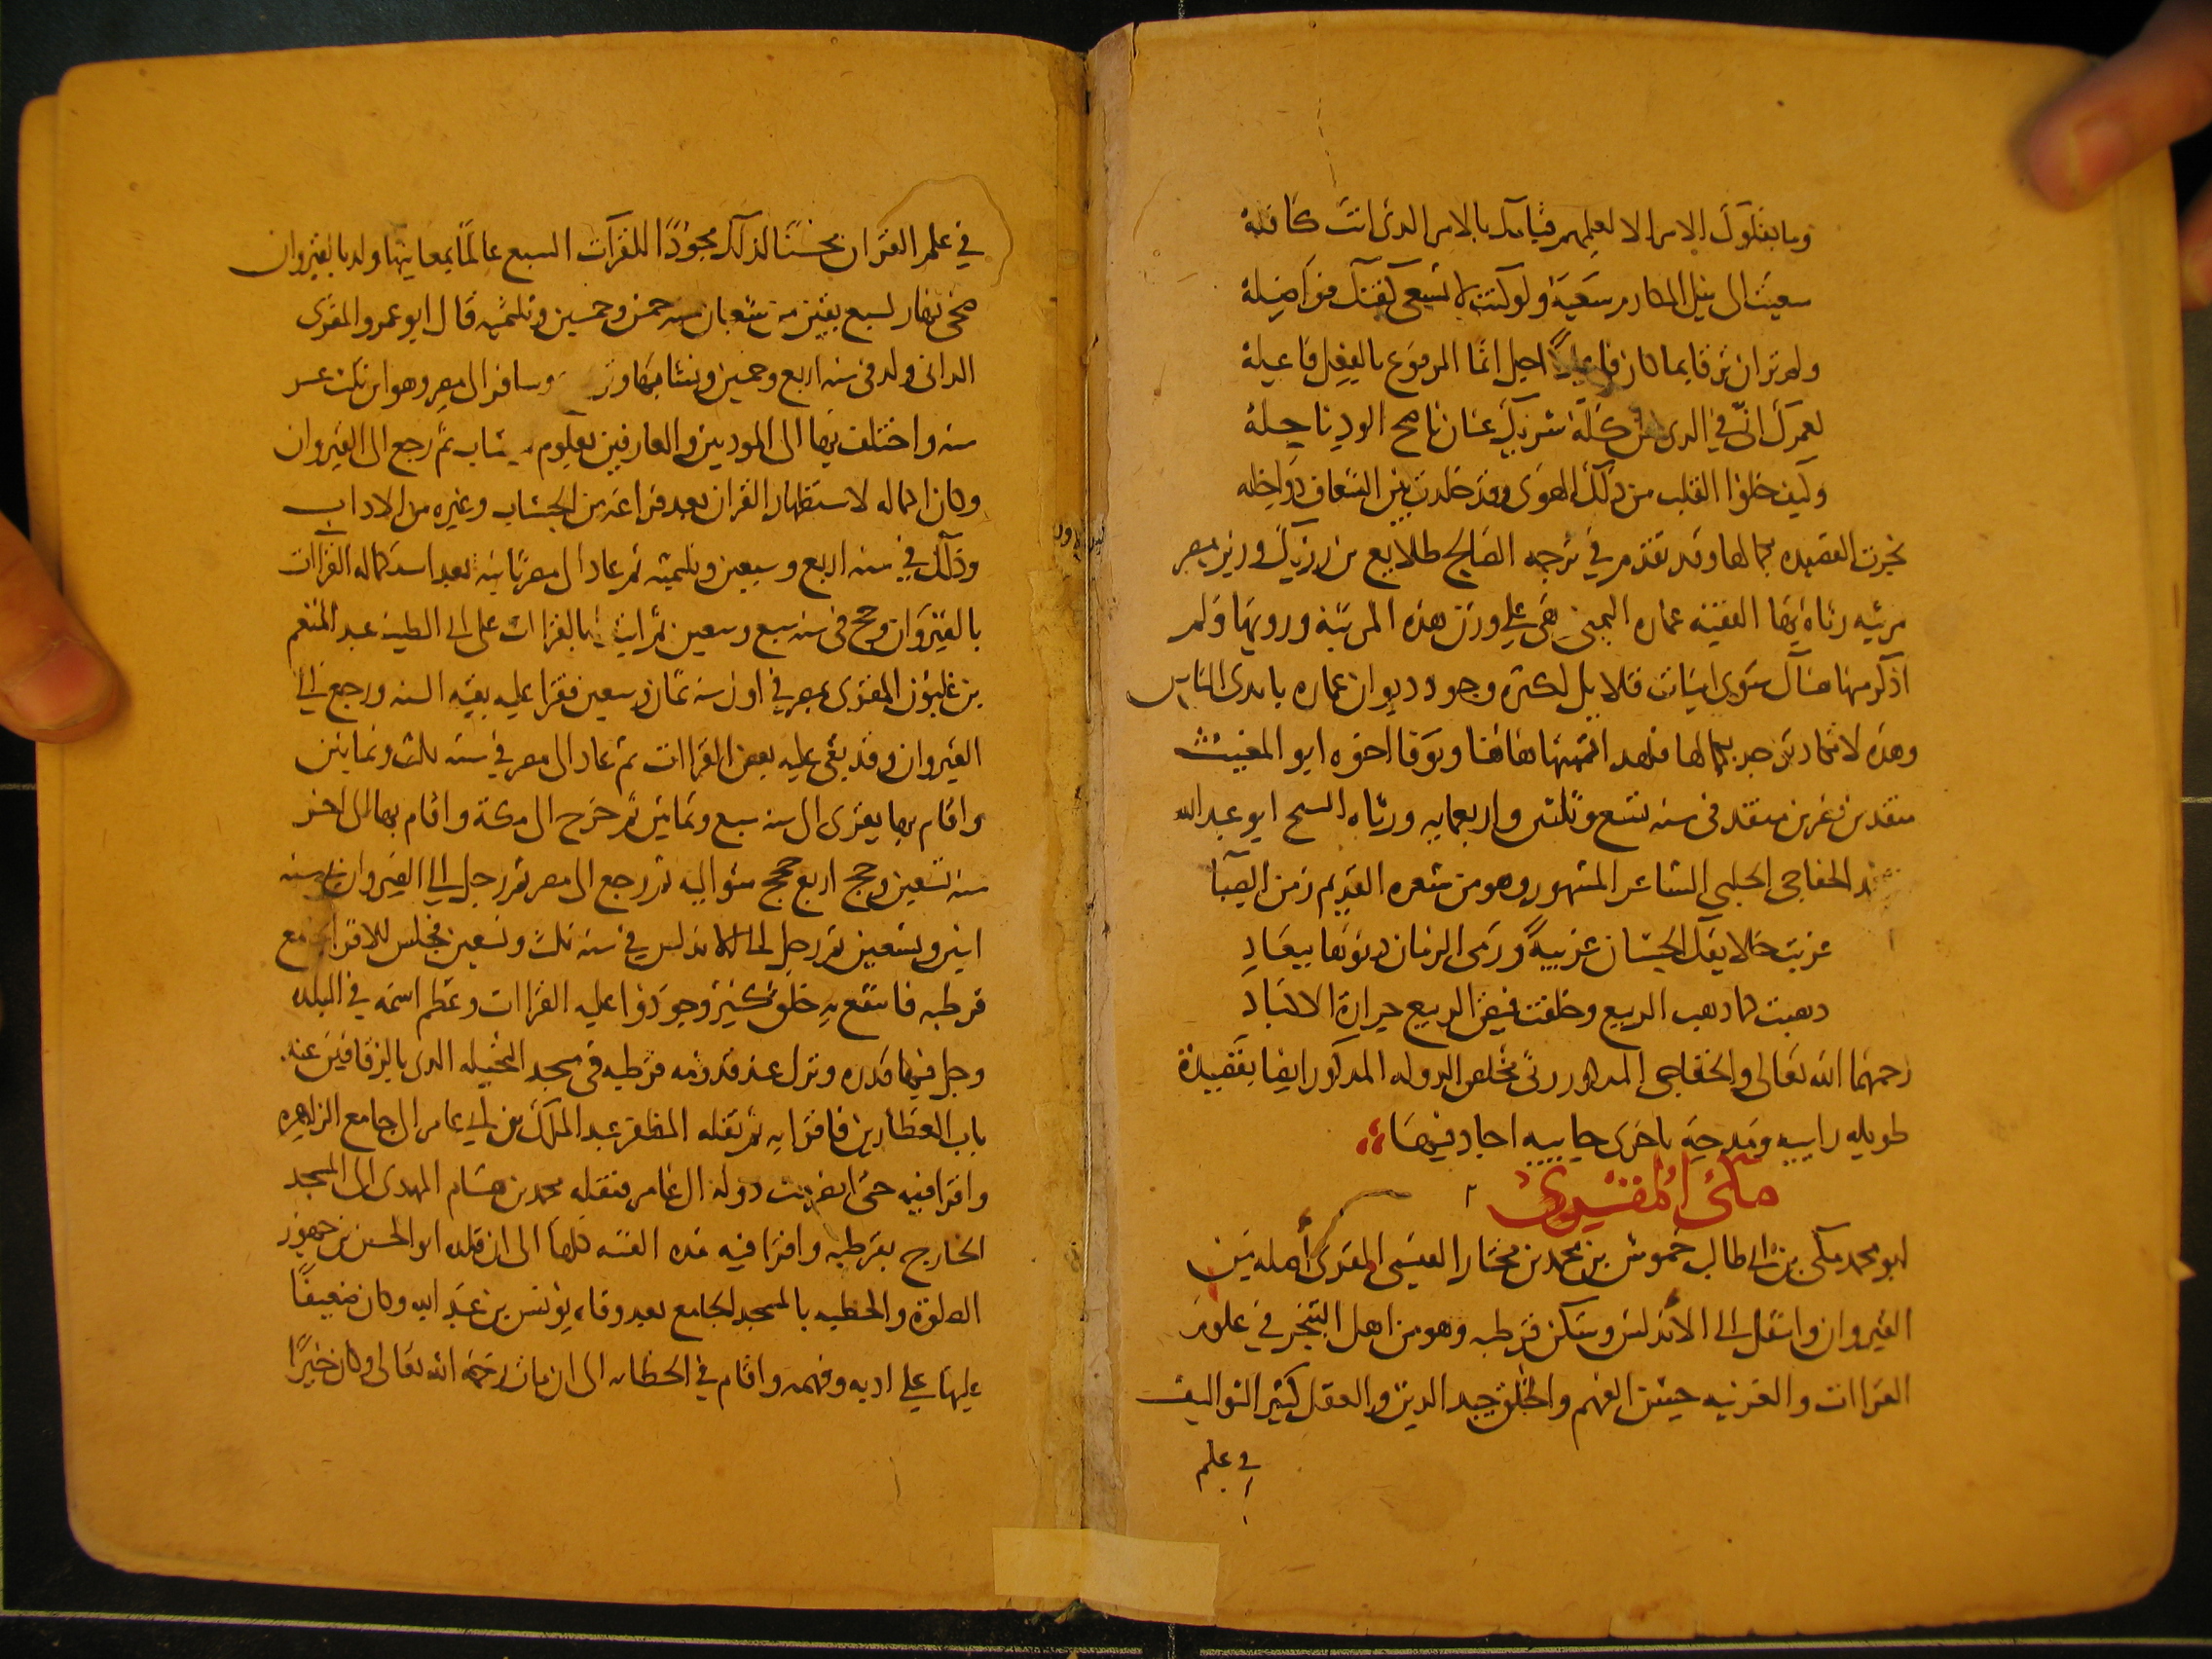 وما بفلوك الامر الا لعلمهم قيامك بالامر الذى انت كافله
سعيت الى نيل المكارم سعيه ولو كنت لا تسعى كفتك فواضله
ولم تر ان ترقا بما كان فاعلا اجل انما المرفوع بالفعل فاعله
لعمرك انى فى الدى كله شريك عنان ناصح الود ناحله
وكيف خلو القلب من ذلك الهوى وقد خلدت بين الشغاف دواخله
نجزت القصيده بكمالها وقد تقدم فى ترجمه الصالح طلايع بن رزيك وزير مصر
مرثيه رثاه بها الفقيه عماره اليمنى هى على وزن هذه المرثية ورويها ولم
اذكر منها هناك سوى ابيات قلايل لكثرة وجود ديوان عماره بايدى الناس
وهذه لا تكاد توجد بكمالها فلهذا اثبتها هاهنا وتوفا اخوه ابو المغيث
منقد بن نصر بن منقد فى سنه تسع وثلثين واربعمايه ورثاه الشيخ ابو عبد الله
الخفاجى الحلبى الشاعر المشهور وهو من شعره القديم زمن الصبا
غربت خلايقك الحسان غريبةً ورمى الزمان دنوها ببعاد
دهبت كما دهب الربيع وخلفت فيض الربيع حرارة الاكباد
رحمهما الله تعالى والخفاجى المدكور رثى مخلص الدوله المدكور ايضا بقصيدة
طويله راييه ومدحه باخرى حاييه اجاد فيها
مكى المقرى
ابو محمد مكى بن ابى طالب حموش بن محمد بن مختار القيسى المقرى أصله من
القيروان وانتقل الى الاندلس وسكن قرطبه وهو من اهل التبحر فى علوم
القراات والعربيه حسن الفهم والخلق جيد الدين والعقل كثير التواليف
فى علم
فى علم القران محسنًا لذلك مجودًا للقرآت السبع عالمًا بمعانيها ولد بالقيروان
ضحى نهار لسبع بقين من شعبان سنه خمس وخمسين وثلثميه قال ابو عمرو المقرى
الدانى ولد فى سنه اربع وخمسين ونشا بها وسافر الى مصر وهو ابن ثلث عشر
سنه واختلف بها الى المودبين والعارفين بعلوم الحساب ثم رجع الى القيروان
وكان اكماله لاستظهار القران بعد فراغه من الحساب وغيره من الاداب
وذلك فى سنه اربع وسبعين وثلثميه ثم عاد الى مصر ثانيه بعد استكماله القراات
بالقيروان وحج فى سنه سبع وسبعين ثم ابتدا بالقراات على ابى الطيب عبد المنعم
بن غلبون المقرى بمصر فى اول سنه ثمان وسبعين فقرا عليه بقيه السنه ورجع الى
القيروان وقد بقى عليه بعض القراات ثم عاد الى مصر فى سنه ثلث وثمانين
واقام بها يقرى الى سنه سبع وثمانين ثم خرج الى مكة واقام بها الى اخر
سنه تسعين وحج اربع حجج متواليه ثم رجع الى مصر ثم رحل الى القيروان سنه
اثنين وتسعين ثم رحل الى الاندلس فى سنه ثلث وتسعين فجلس للاقرا بجامع
قرطبه فانتفع به خلق كثير وجودوا عليه القراات وعظم اسمه فى البلده
وجل فيها قدره ونزل عند قدومه قرطبه فى مسجد النخيله الدى بالزقاقين عند
باب العطارين فاقرا به ثم نقله المظفر عبد الملك بن ابى عامر الى جامع الزاهره
واقرا فيه حتى انصرمت دولة ال عامر فنقله محمد بن هشام المهدى الى المسجد
الخارج بقرطبه واقرا فيه مده الفتنه كلها الى ان قلده ابو الحسن بن جهور
الصلوة والخطبه بالمسجد الجامع بعد وفاه يونس بن عبد الله وكان ضعيفًا
عليها على ادبه وفهمه واقام فى الخطابه الى ان مات رحمه الله تعالى وكان خيرًا